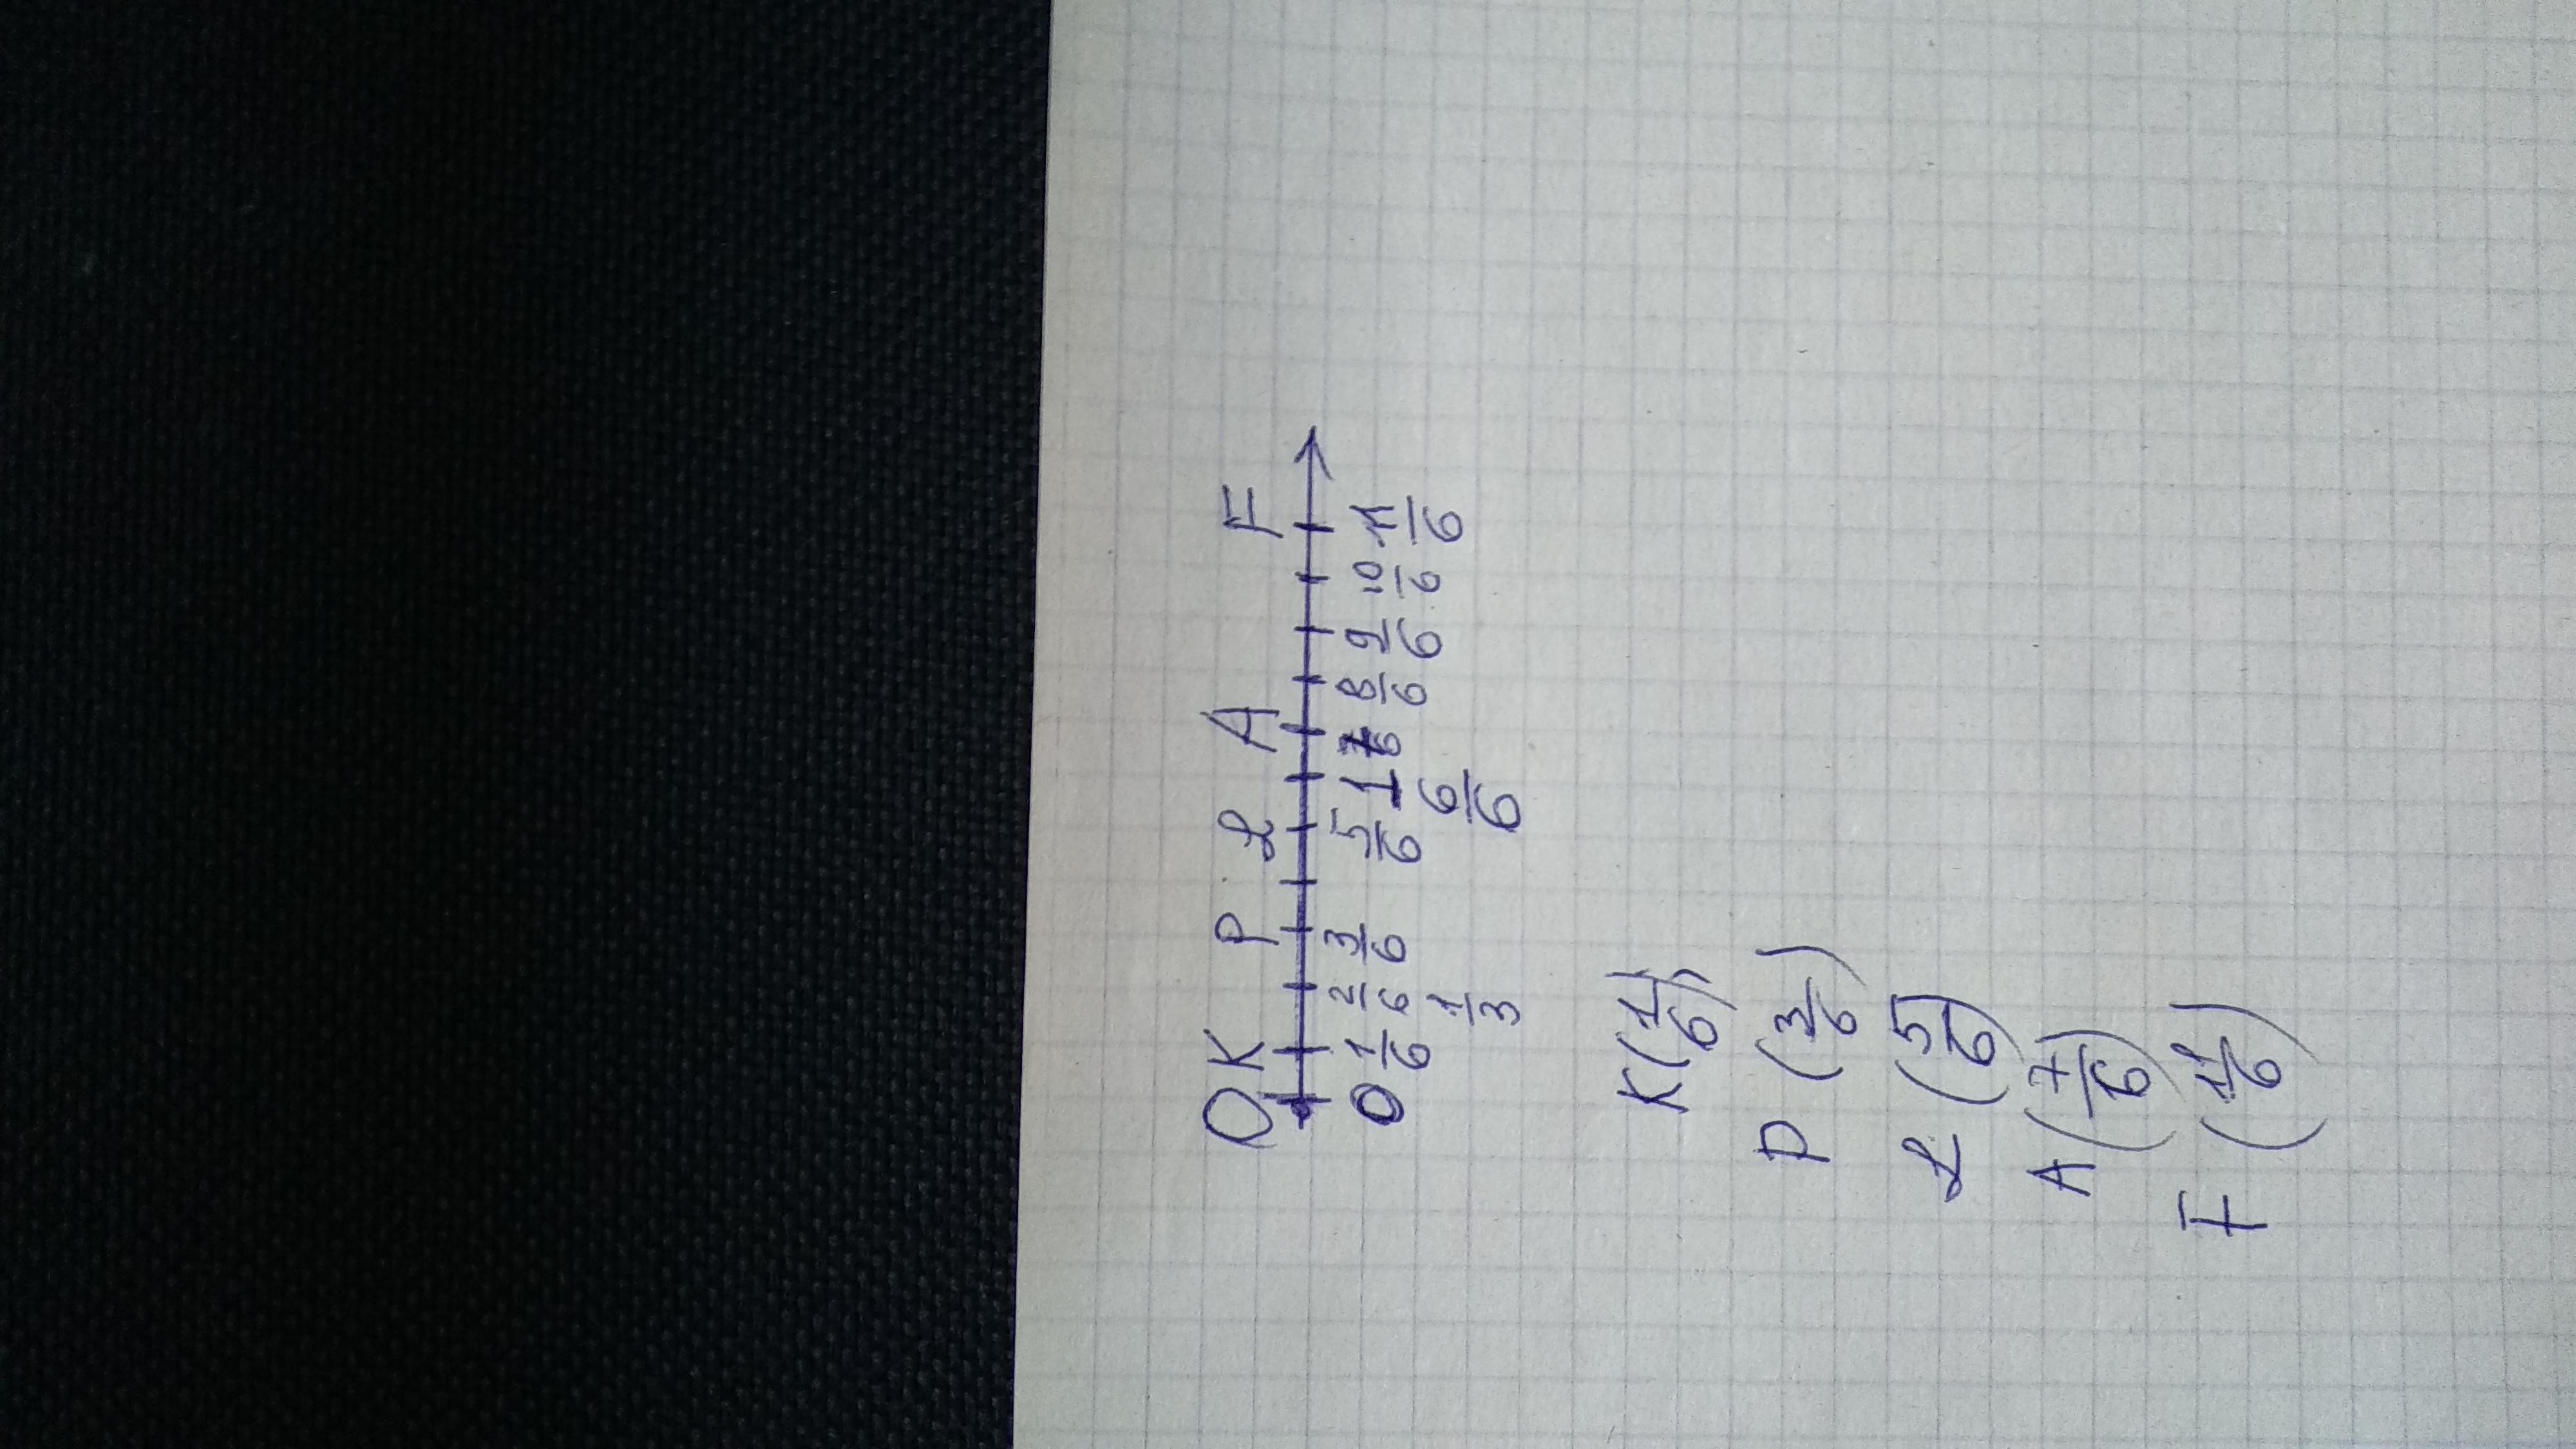 O K P L A F
0 1/6 2/6 3/6 5/6 1 7/6 8/6 9/6 10/6 11/6
1/3 6/6
K(1/6)
P(3/6)
L(5/6)
A(7/6)
F(11/6)